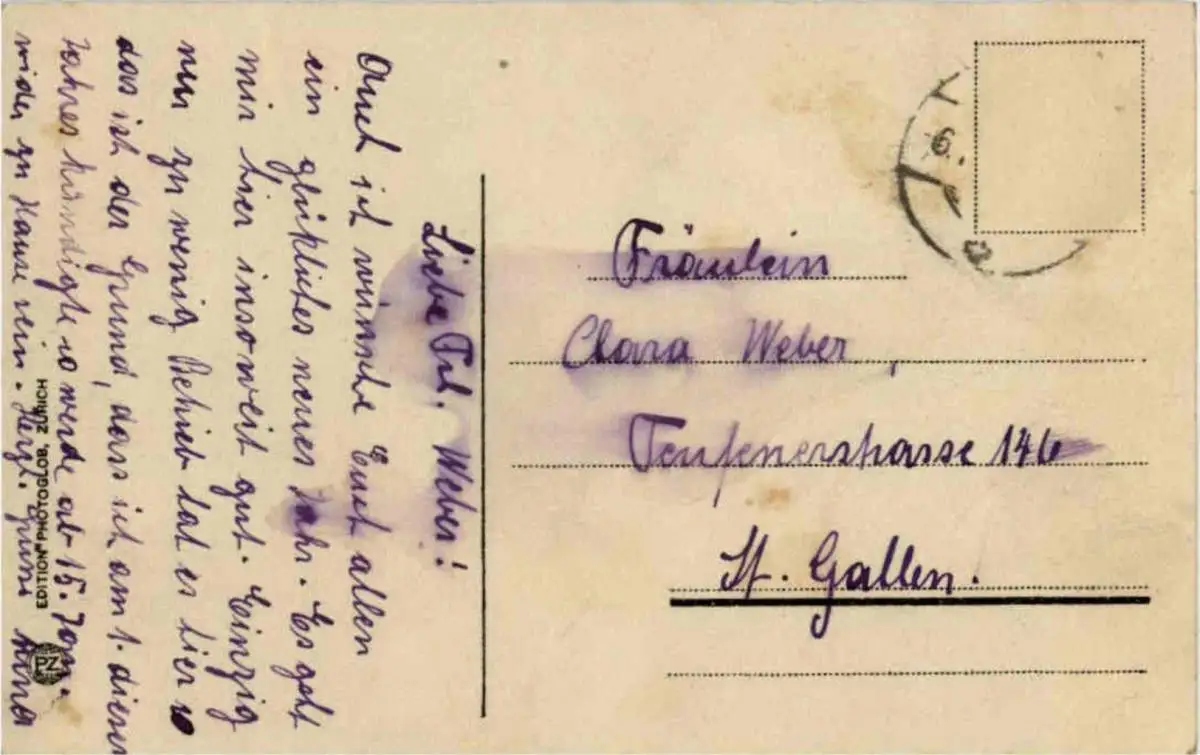 Liebe Frl. Weber!
Auch ich wünsche Euch allen
ein glükliches neues Jahr. Es geht
mir hier insoweit gut. Einzig
nur zu wenig Betrieb hat es hier so
das ist der Grund, dass ich am 1. dieses
Jahres kündigte so werde ab 15. Jan.
wider zu Hause sein. Herzl. Gruss
EDITION PHOTOGLOB, ZÜRICH
PZ
6.
Fräulein
Clara Weber,
Teufenerstrasse 146
St. Gallen.